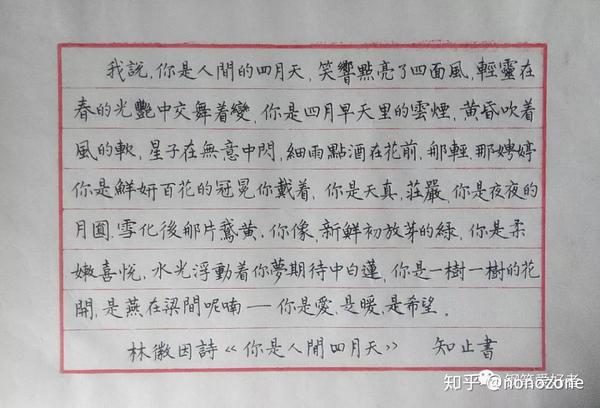 我説,你是人間的四月天,笑響點亮了四面風,輕靈在
春的光艷中交舞着變,你是四月早天里的雲煙,黄昏吹着
風的軟,星子在無意中閃,細雨點酒在花前,那輕,那娉婷
你是鮮妍百花的冠冕你戴着,你是天真,莊嚴,你是夜夜的
月圓.雪化後那片鵞黄.你像,新鮮初放芽的緑,你是柔
嫩喜悦,水光浮動着你夢期待中白蓮,你是一樹一樹的花
開,是燕在梁間呢喃——你是愛,是暖,是希望.
林徽因詩《你是人間四月天》 知止書
知乎 @nonozone
钢笔爱好者